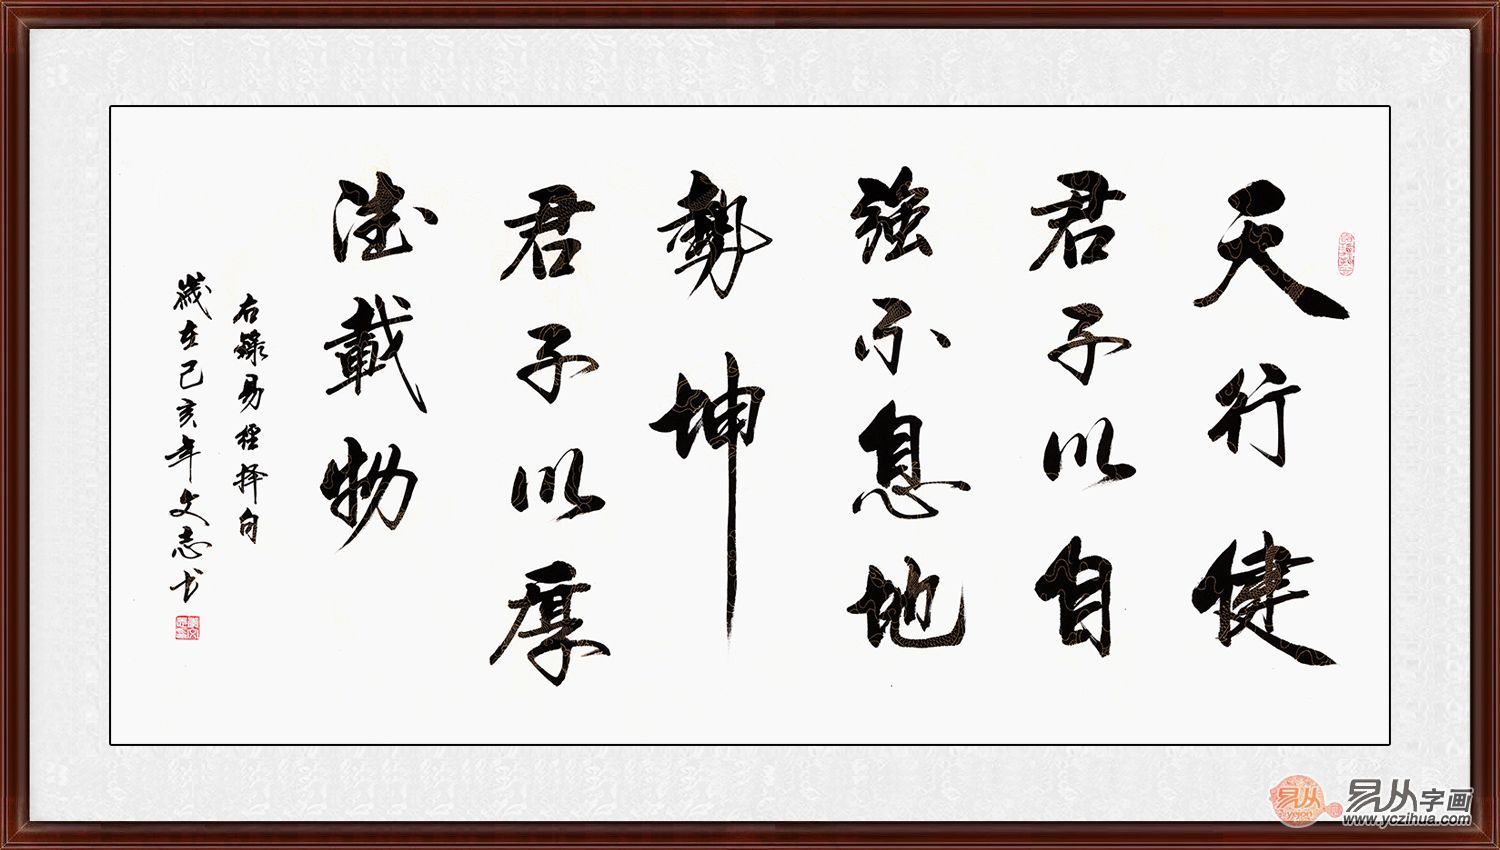 天行健
君子以自
強不息地
勢坤
君子以厚
德載物
右錄易經择句
歲在己亥年文志书
易从
易从字画
www.yczihua.com